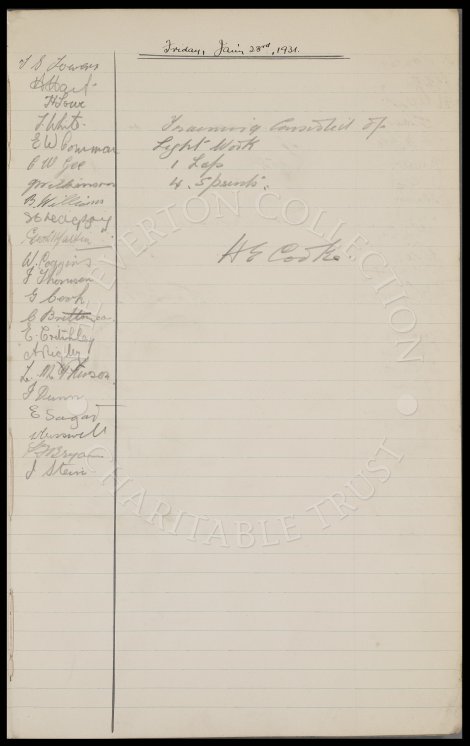 Friday, Jan 23rd, 1931.
T S Towers
H Hart
H Lowe
T White
E W Common
C W Gee
J Wilkinson
B Williams
W Coggins
T Thomson
G Cook
C Britton
E Critchley
A Rigby
L M Pherson
J Dunn
E Sagar
J Stein
Trainning Consisted of
Light Work
1 Lap
4. Sprints.
H E Cooke.
THE EVERTON COLLECTION
CHARITABLE TRUST